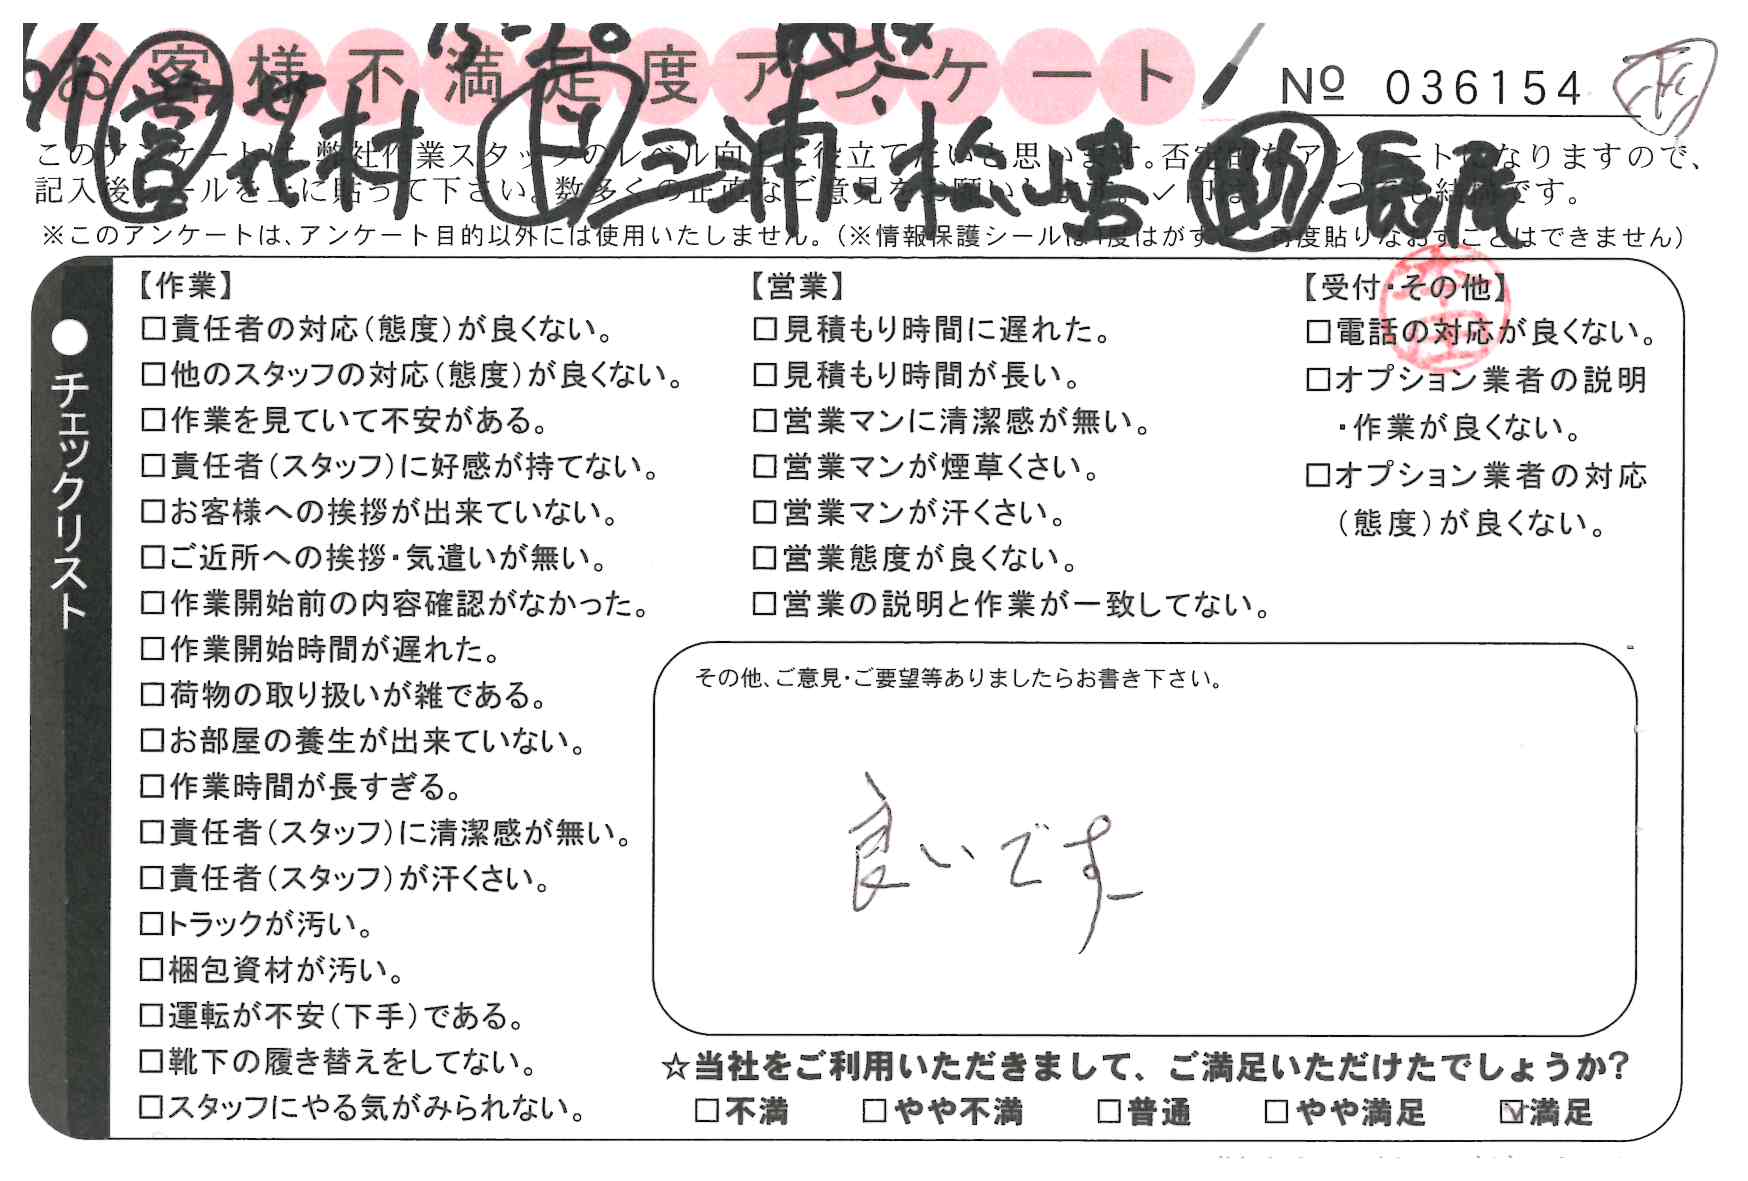 お客様不満足度アンケート
№ 036154
営 北村 ト 三浦 松崎 助 長尾
このアンケートは、弊社作業スタッフのレベル向上に役立てたいと思います。否定的なアンケートになりますので、
記入後シールを上に貼って下さい。数多くの正直なご意見をお願いします。✓印はいくつでも結構です。
※このアンケートは、アンケート目的以外には使用いたしません。(※情報保護シールは1度はがすと、再度貼りなおすことはできません)
●チェックリスト
【作業】
□責任者の対応(態度)が良くない。
□他のスタッフの対応(態度)が良くない。
□作業を見ていて不安がある。
□責任者(スタッフ)に好感が持てない。
□お客様への挨拶が出来ていない。
□ご近所への挨拶・気遣いが無い。
□作業開始前の内容確認がなかった。
□作業開始時間が遅れた。
□荷物の取り扱いが雑である。
□お部屋の養生が出来ていない。
□作業時間が長すぎる。
□責任者(スタッフ)に清潔感が無い。
□責任者(スタッフ)が汗くさい。
□トラックが汚い。
□梱包資材が汚い。
□運転が不安(下手)である。
□靴下の履き替えをしてない。
□スタッフにやる気がみられない。
【営業】
□見積もり時間に遅れた。
□見積もり時間が長い。
□営業マンに清潔感が無い。
□営業マンが煙草くさい。
□営業マンが汗くさい。
□営業態度が良くない。
□営業の説明と作業が一致してない。
【受付・その他】
□電話の対応が良くない。
□オプション業者の説明
・作業が良くない。
□オプション業者の対応
(態度)が良くない。
その他、ご意見・ご要望等ありましたらお書き下さい。
良いです
☆当社をご利用いただきまして、ご満足いただけたでしょうか?
□不満 □やや不満 □普通 □やや満足 ☑満足